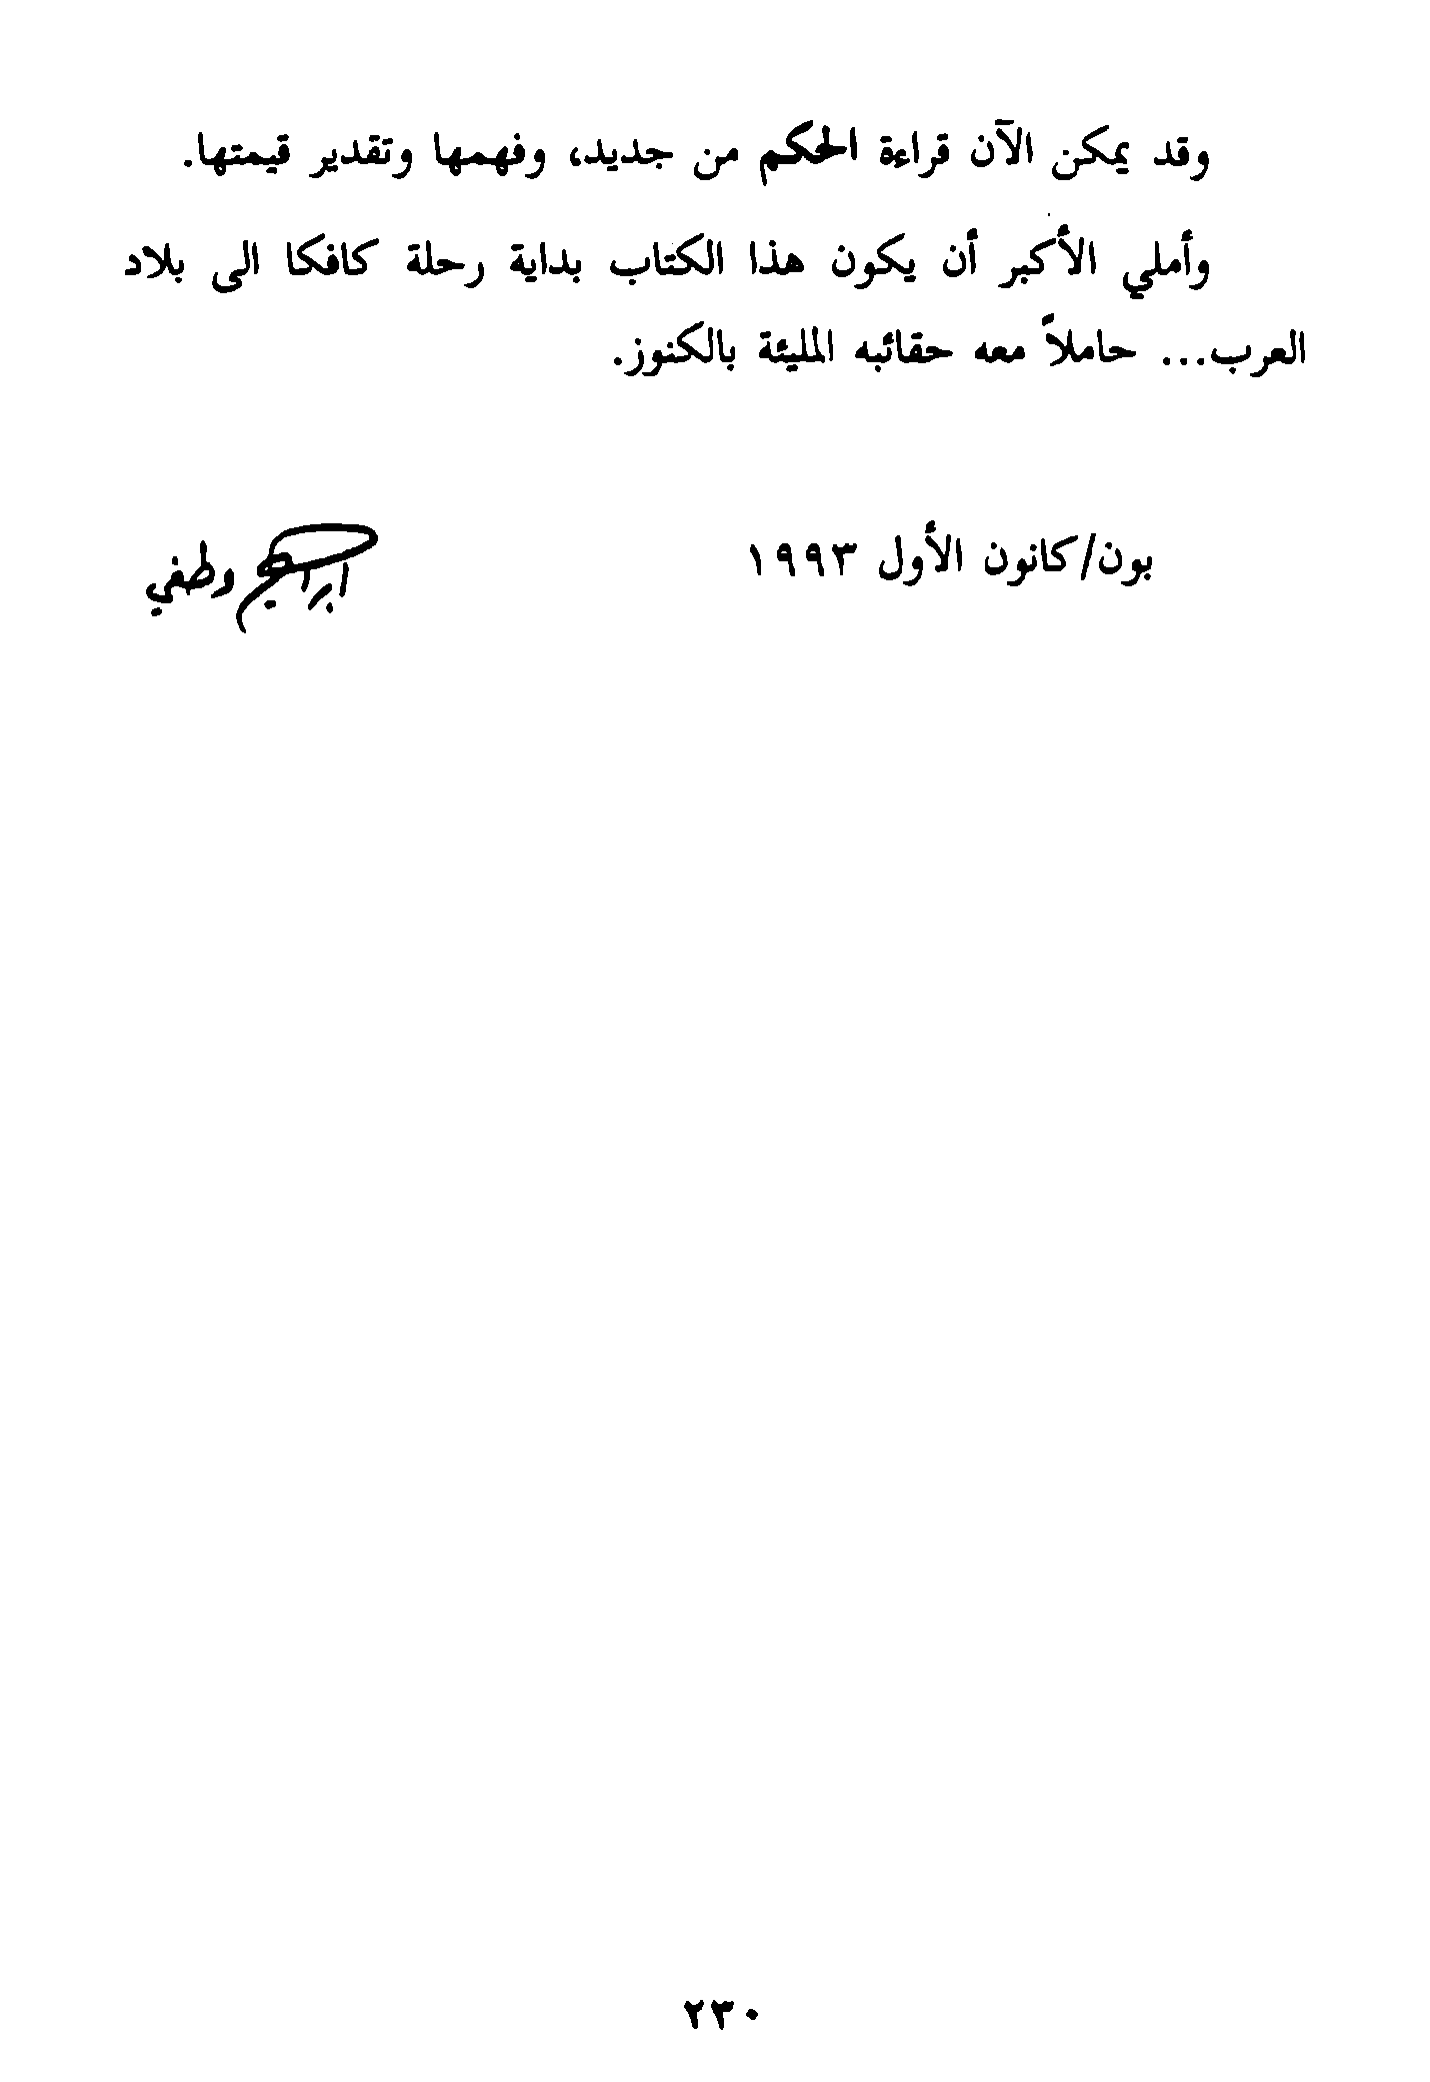 وقد يمكن الآن قراءة الحكم من جديد، وفهمها وتقدير قيمتها.
وأملي الأكبر أن يكون هذا الكتاب بداية رحلة كافكا الى بلاد
العرب... حاملاً معه حقائبه المليئة بالكنوز.
بون/كانون الأول ١٩٩٣
ابراهيم وطفي
٢٣٠